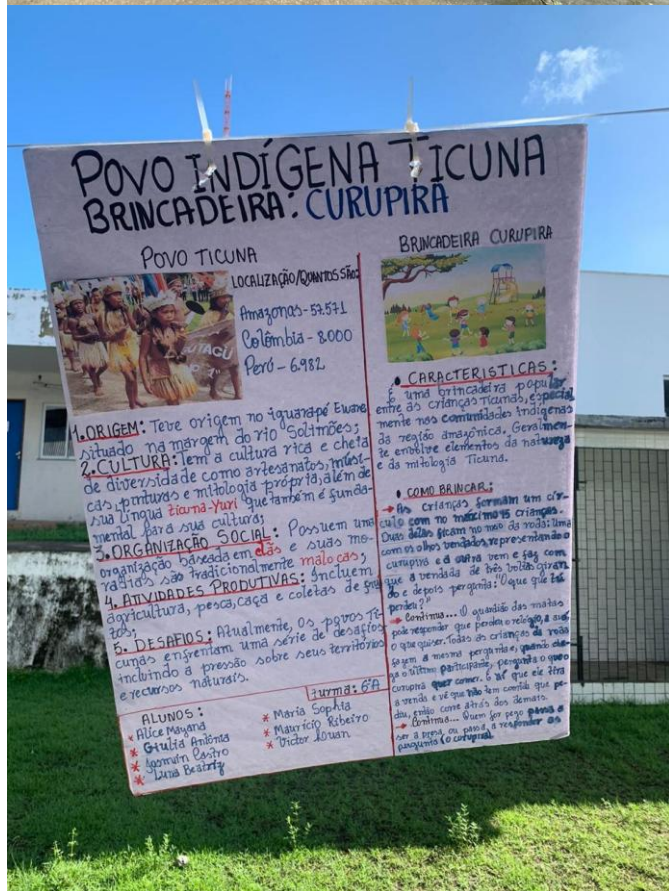 POVO INDÍGENA TICUNA
BRINCADEIRA: CURUPIRA
POVO TICUNA
LOCALIZAÇÃO/QUANTOS SÃO:
Amazonas - 57.571
Colômbia - 8.000
Perú - 6.982
1. ORIGEM: Teve origem no iguarapé Eware
situado na margem do rio Solimões;
2. CULTURA: Tem a cultura rica e cheia
de diversidade como artesanatos, músi-
cas, pinturas e mitologia própria, além de
sua língua ticuna-yuri que também é funda-
mental para sua cultura;
3. ORGANIZAÇÃO SOCIAL: Possuem uma
organização baseada em clãs e suas mo-
radias são tradicionalmente malocas;
4. ATIVIDADES PRODUTIVAS: Incluem
agricultura, pesca, caça e coletas de fru
tos;
5. DESAFIOS: Atualmente, os povos Ti-
cunas enfrentam uma série de desafios
incluindo a pressão sobre seus territórios
e recursos naturais.
turma: 6ºA
ALUNOS:
* Alice Mayana
* Giulia Antônia
* Jasmim Castro
* Luna Beatriz
* Maria Sophia
* Maurício Ribeiro
* Victor Louan
BRINCADEIRA CURUPIRA
• CARACTERISTICAS:
É uma brincadeira popular
entre as crianças ticunas, especial
mente nas comunidades indígenas
da região amazônica. Geralmen-
te envolve elementos da natureza
e da mitologia Ticuna.
• COMO BRINCAR:
→ As crianças formam um cír-
culo com no máximo 15 crianças.
Duas delas ficam no meio da roda: uma
com os olhos vendados representando o
curupira e a outra vem e faz com
que a vendada de três voltas giran
do e depois pergunta: "O que que tu
perdeu?"
→ Continua... O guardião das matas
pode responder que perdeu o relógio, a
o que quiser. Todas as crianças da roda
fazem a mesma pergunta e, quando
o último participante, pergunta o que o
curupira quer comer. É aí que ele tira
a venda e vê que não tem comida que pe-
diu, então corre atrás dos demais.
→ Continua... Quem for pego passa a
ser a presa, ou passa a responder as
pergunta (o curupira).